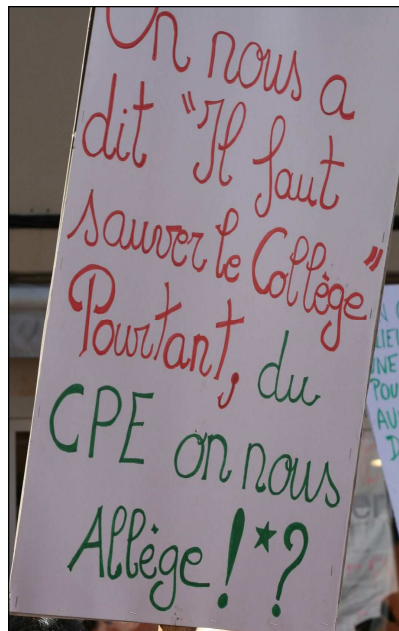 On nous a
dit "Il faut
sauver le Collège"
Pourtant, du
CPE on nous
Allège !*?